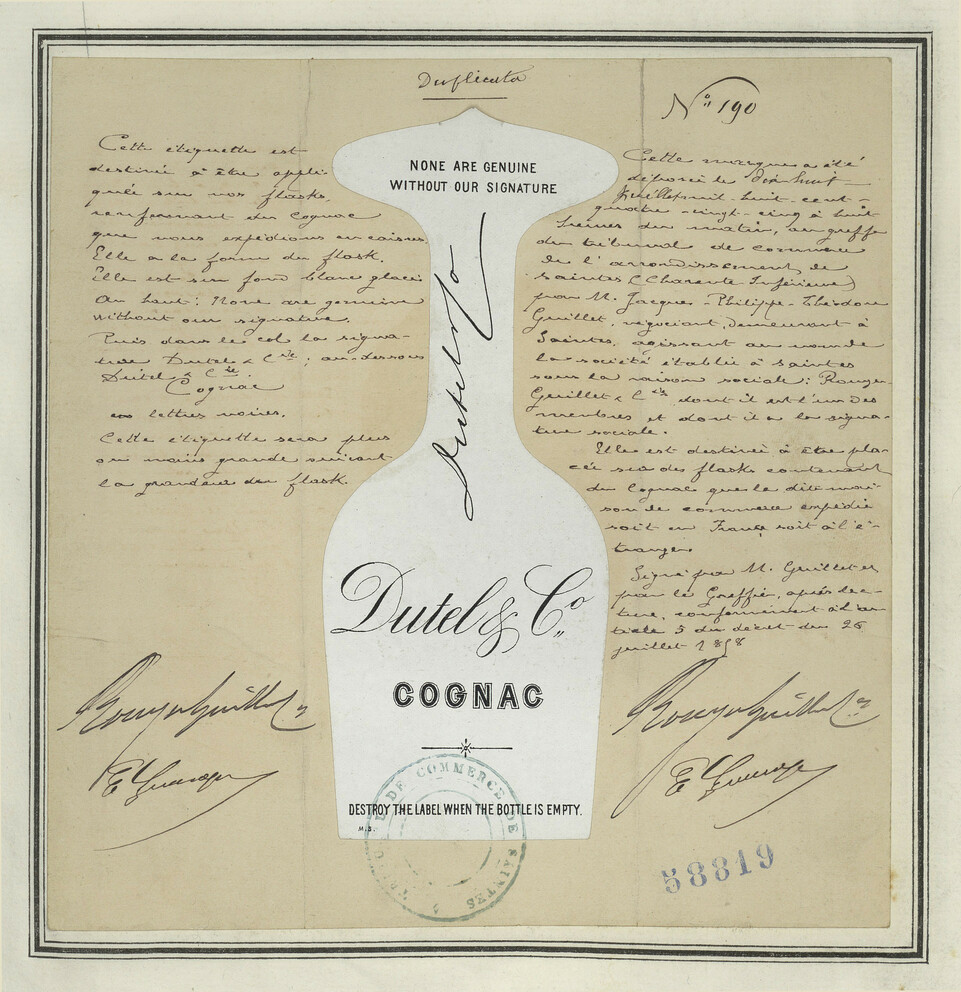 Duplicata
N° 190
Cette étiquette est
destinée à être appli-
quée sur nos flasks
renfermant du Cognac
que nous expédions en caisses.
Elle a la forme du flask.
Elle est sur fond blanc glacé
Au haut: None are genuine
without our signature.
Puis dans le col la signa-
ture Dutel & Cie; au-dessous
Dutel & Cie
Cognac
en lettres noires.
Cette étiquette sera plus
ou moins grande suivant
la grandeur du flask.
Rouyer Guillet
NONE ARE GENUINE
WITHOUT OUR SIGNATURE
Dutel & Co
Dutel & Co
COGNAC
DESTROY THE LABEL WHEN THE BOTTLE IS EMPTY.
M.B.
TRIBUNAL DE COMMERCE DE SAINTES
Cette marque a été
déposée le dix huit
Juillet mil-huit-cent-
quatre-vingt-cinq à huit
heures du matin, au greffe
du tribunal de commerce
de l'arrondissement de
Saintes (Charente Inférieure)
par M. Jacques-Philippe-Théodore
Guillet, négociant, demeurant à
Saintes, agissant au nom de
la société établie à Saintes
sous la raison sociale: Rouyer
Guillet & Cie dont il est l'un des
membres et dont il a la signa-
ture sociale.
Elle est destinée à être pla-
cée sur des flasks contenant
du Cognac que la dite mai-
son de commerce expédie
soit en France soit à l'é-
tranger.
Signé par M. Guillet et
par le Greffier, après lec-
ture, conformément à l'ar
ticle 5 du décret du 26
juillet 1858
Rouyer Guillet
58819